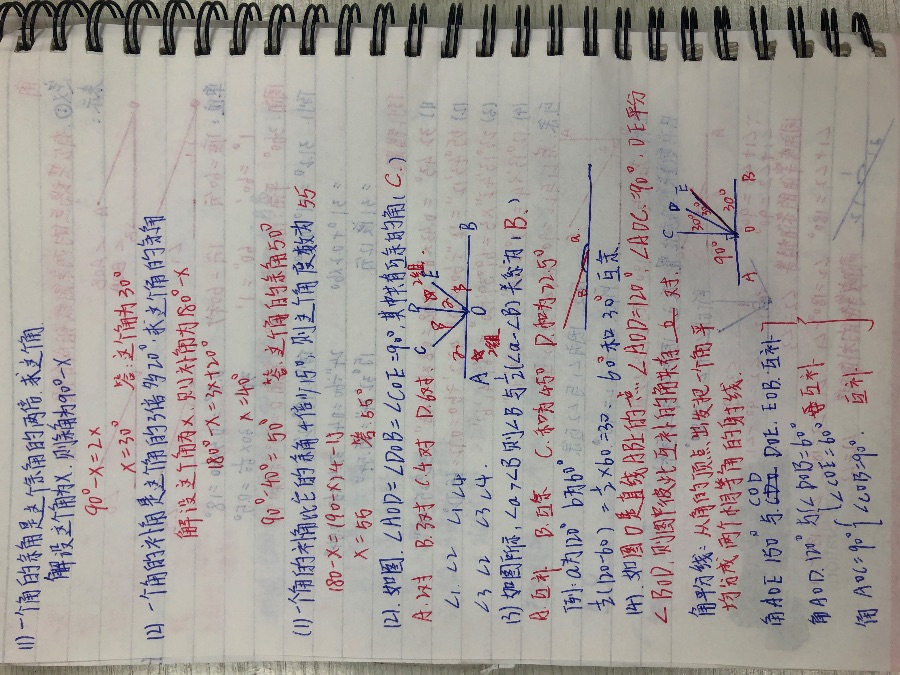 11) 一个角的余角是这个余角的两倍.求这个角.
解设这个角为x.则余角为90°-x
90°-x=2x
x=30° 答:这个角为30°
12) 一个角的补角是这个角的3倍多20°求这个角的余角
解设这个角为x.则补角为180°-x
180°-x=3x+20°
x=40°
90°-40°=50° 答 这个角的余角50°
(1) 一个角的补角比它的余角4倍少15°,则这个角度数为 55
180-x=(90-x)4-15
x=55 答 55°
(2). 如图.∠AOD=∠DOB=∠COE=90°,其中共有互余的角( C.)
A.2对 B.3对 C.4对 D.6对.
∠1. ∠2 ∠1 ∠4
∠3 ∠2 ∠3 ∠4.
C D E A O B
13) 如图所示,∠a>∠B则∠B与½(∠a-∠B)关系为(B.)
A.互补 B.互余 C.和为45° D.和为22.5°
例:a为120° b为60°
½(120-60)=½×60=30. 60°和30°互余.
B a
14). 如图O是直线AB上的点.∠AOD=120°,∠AOC=90°,OE平分
∠BOD.则图中彼此互补的角共有 6 对.
角平分线:从角的顶点出发把一个角平
均分成两个相等角的射线.
C D E 90° 30° 30° 30° A O B
角AOE 150°与 COD DOE. EOB.互补
角AOD.120°与{∠DOB=60° ∠COE=60° 互补
角AOC=90°{∠COB=90°. 互补.